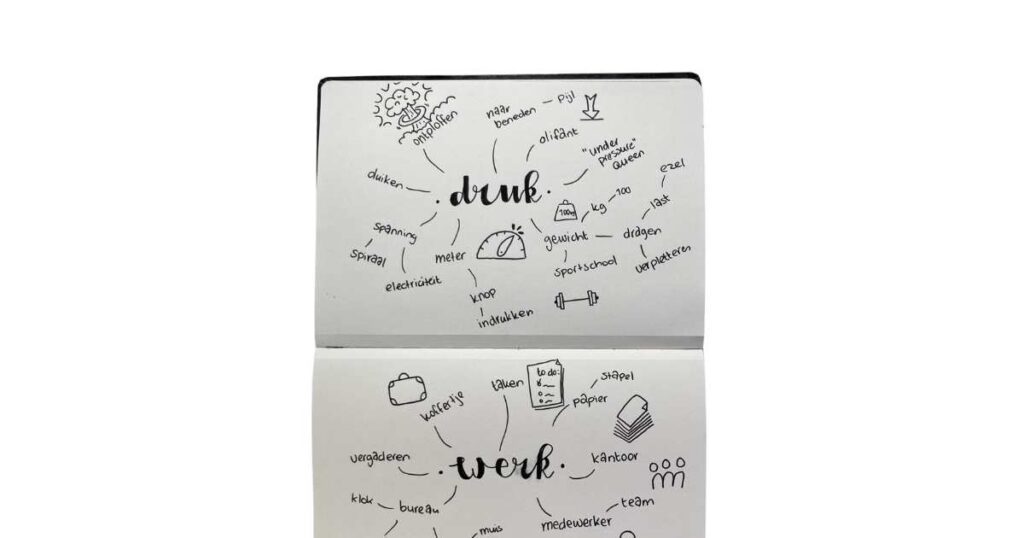 ontploffen
naar
beneden
pijl
olifant
"under
pressure"
queen
duiken
druk
ezel
last
100
kg
100kg
gewicht
dragen
verpletteren
sportschool
spanning
spiraal
electriciteit
meter
knop
indrukken
koffertje
taken
to do:
papier
stapel
vergaderen
werk
kantoor
klok
bureau
muis
medewerker
team